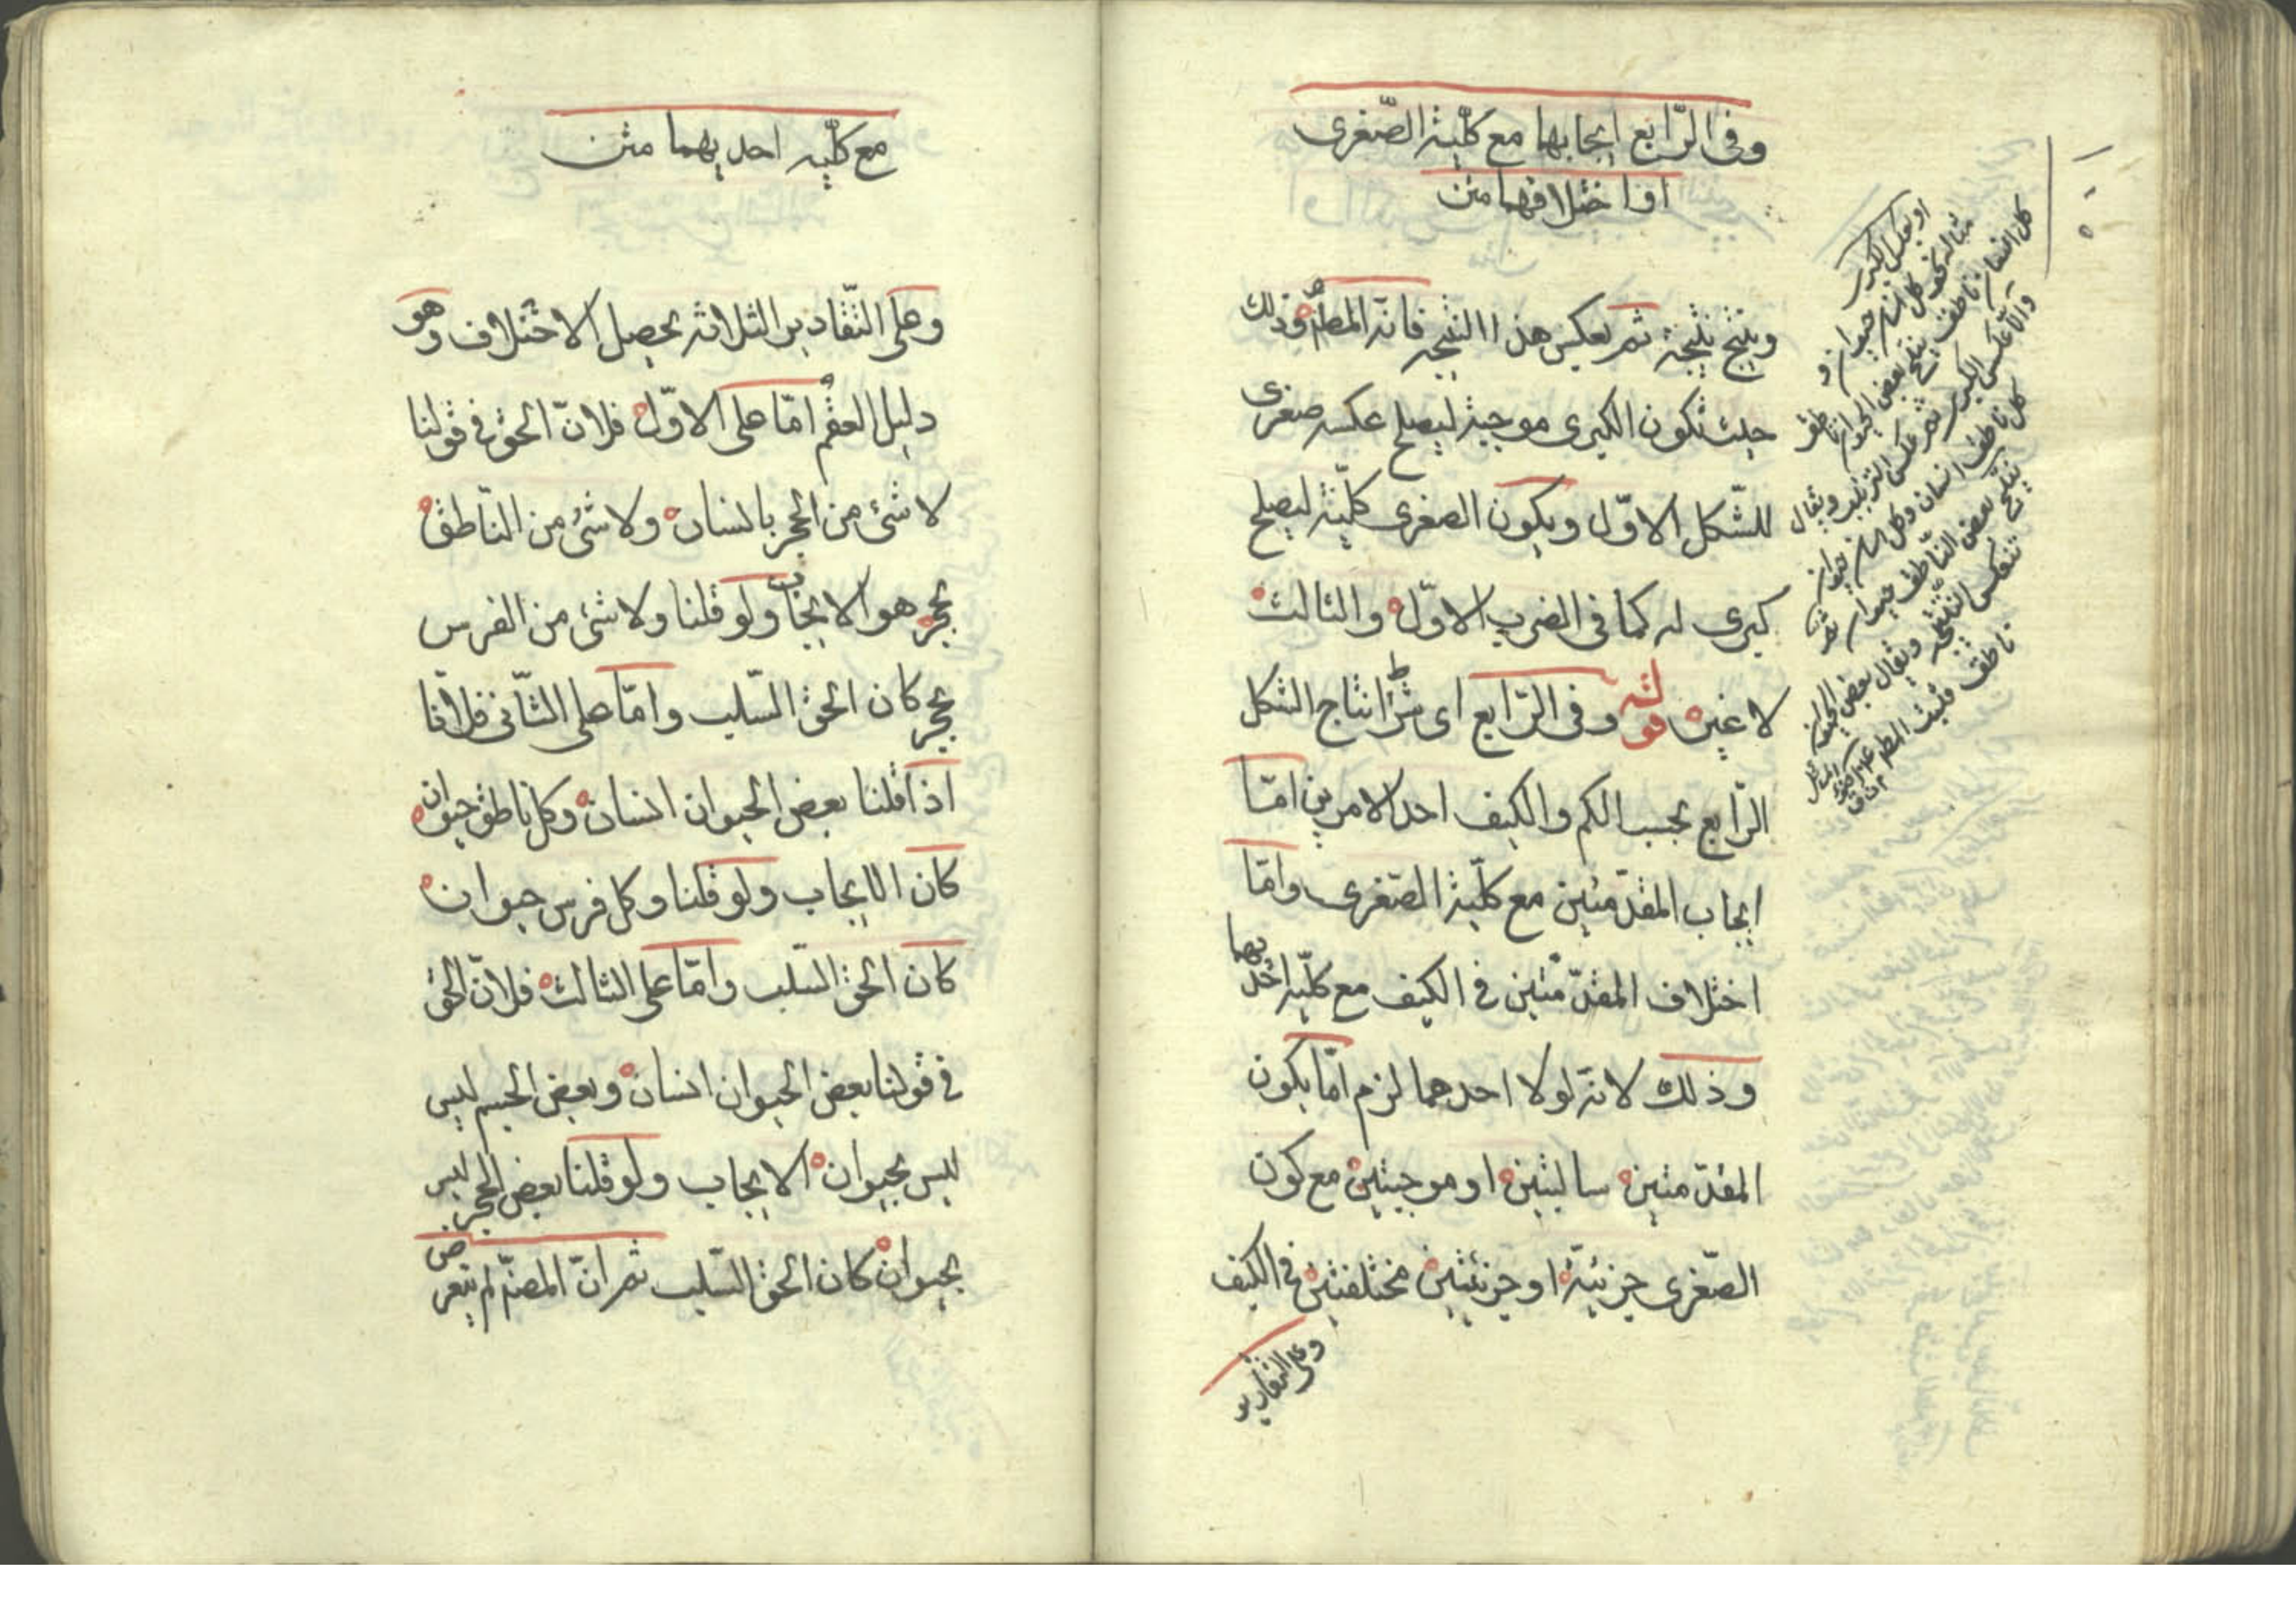 وفى الرّابع ايجابها مع كلّية الصّغرى
او اختلافهما متن
وينتج نتيجة ثم يعكس هذا النتيجه فانه المطلوب وذلك
حيث تكون الكبرى موجبة ليصلح عكسه صغرى
للشّكل الاوّل ويكون الصغرى كلّية ليصلح
كبرى له كما فى الضرب الاوّل والثالث
لا غير قوله وفى الرّابع اى شرط انتاج الشكل
الرّابع بحسب الكم والكيف احد الامرين امّا
ايجاب المقدّمتين مع كلّية الصّغرى وامّا
اختلاف المقدّمتين فى الكيف مع كلّيه احديهما
وذلك لانه لولا احدهما لزم امّا يكون
المقدّمتين سالبتين او موجبتين مع كون
الصّغرى جزئيّة او جزئيتين مختلفتين فى الكيف
وعلى التقادير
او بعكس الكبرى
مثاله كل انسان حيوان و
كل انسان ناطق ينتج بعض الحيوان ناطق
والا عكس الكبرى ثم عكس الترتيب ويقال
كل ناطق انسان وكل انسان حيوان
ينتج بعض النّاطق حيوان ثم
تنعكس النتيجه ويقال بعض الحيوان
ناطق فثبت المط
مع كلّيه احديهما متن
وعلى التّقادير الثلاثه يحصل الاختلاف وهو
دليل العقم امّا على الاوّل فلانّ الحق فى قولنا
لا شئ من الحجر بانسان ولا شئ من النّاطق
بحجر هو الايجاب ولو قلنا ولا شئ من الفرس
بحجر كان الحق السّلب وامّا على الثّانى فلانّا
اذا قلنا بعض الحيوان انسان وكل ناطق حيوان
كان الايجاب ولو قلنا وكل فرس حيوان
كان الحق السّلب وامّا على الثالث فلانّ الحق
فى قولنا بعض الحيوان انسان وبعض الجسم ليس
ليس بحيوان الايجاب ولو قلنا بعض الحجر ليس
بحيوان كان الحق السّلب ثم انّ المصنّ لم يتعرض